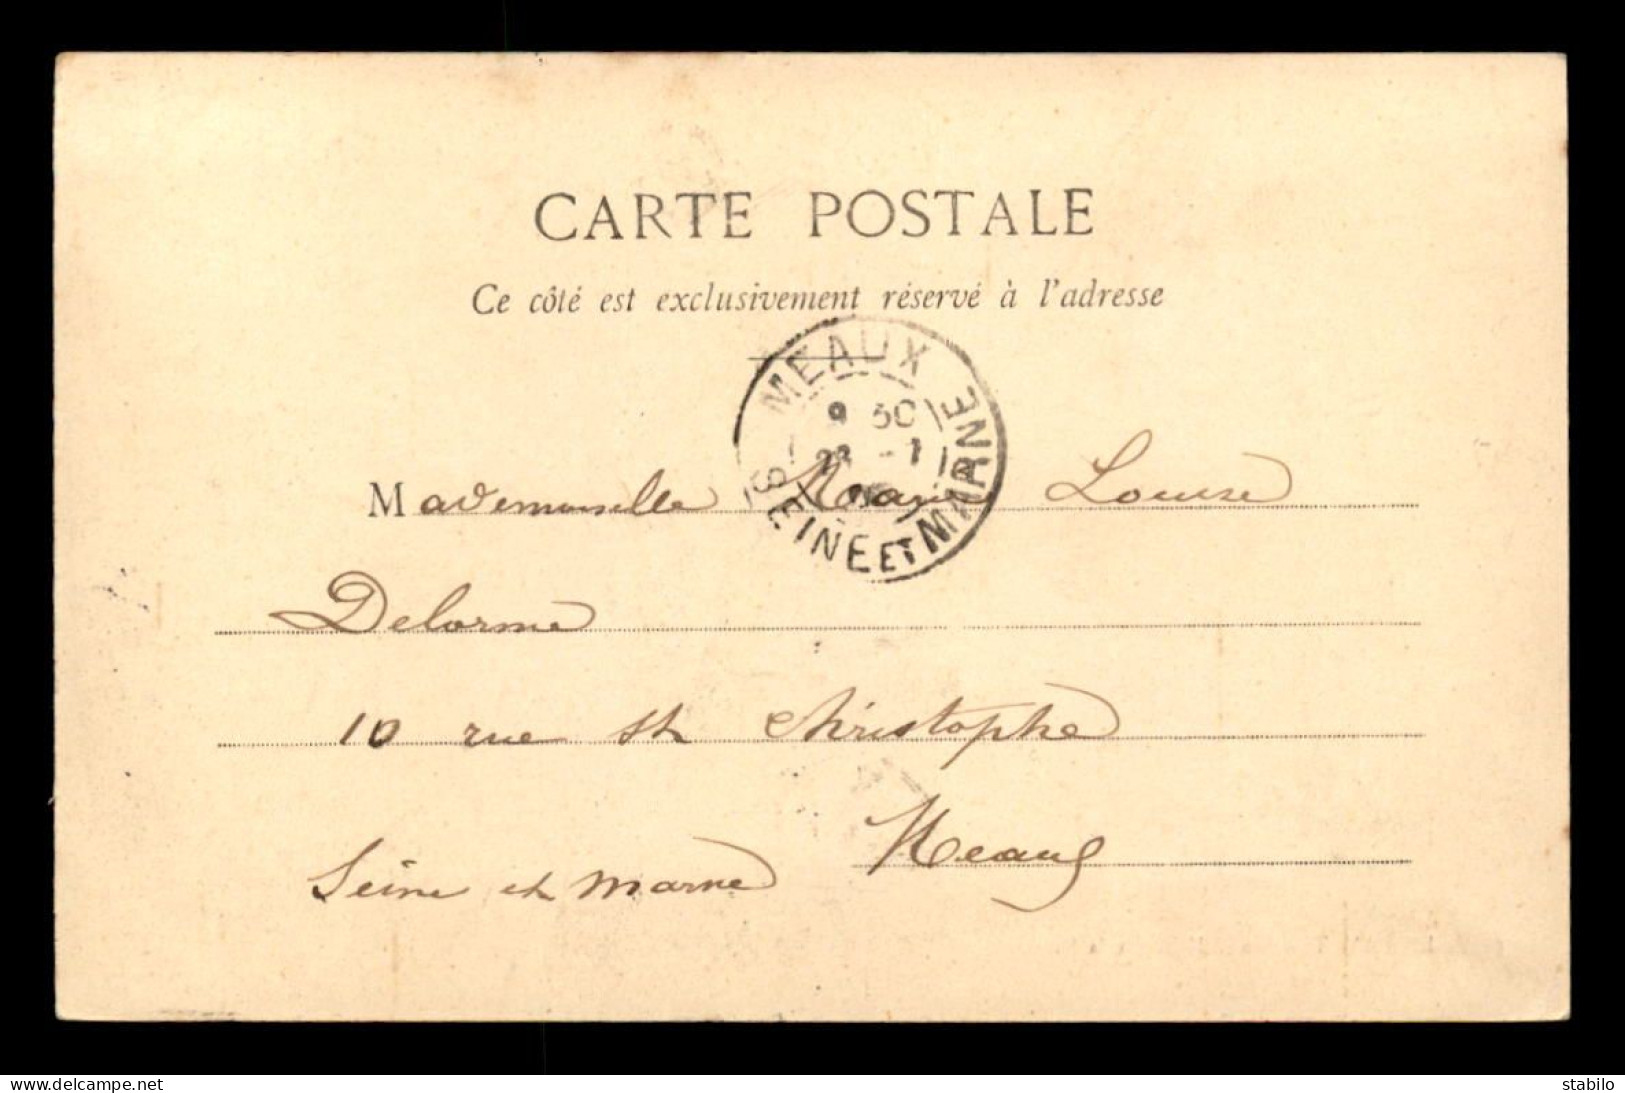 CARTE POSTALE
Ce côté est exclusivement réservé à l'adresse
MEAUX
9 30
23 -1
SEINE ET MARNE
Mademoiselle Marie Louise
Delorme
10 rue St Christophe
Meaux
Seine et Marne
www.delcampe.net
stabilo